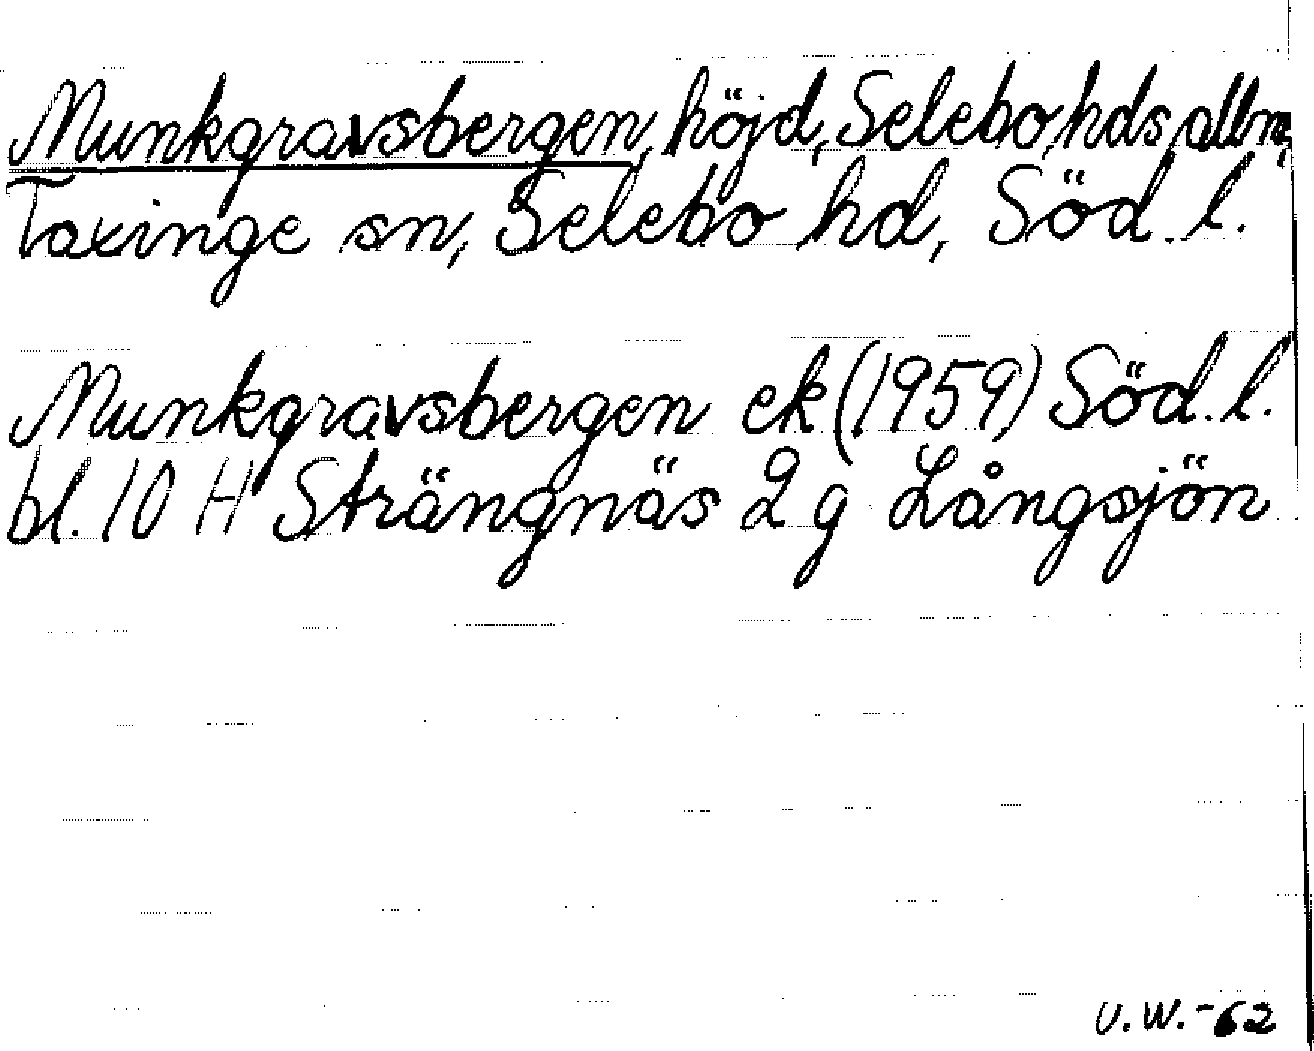 Munkgravsbergen, höjd, Selebo hds allm,
Taxinge sn, Selebo hd, Söd. l.
Munkgravsbergen ek (1959) Söd. l.
bl. 10 H Strängnäs 2 g Långsjön
U.W.-62